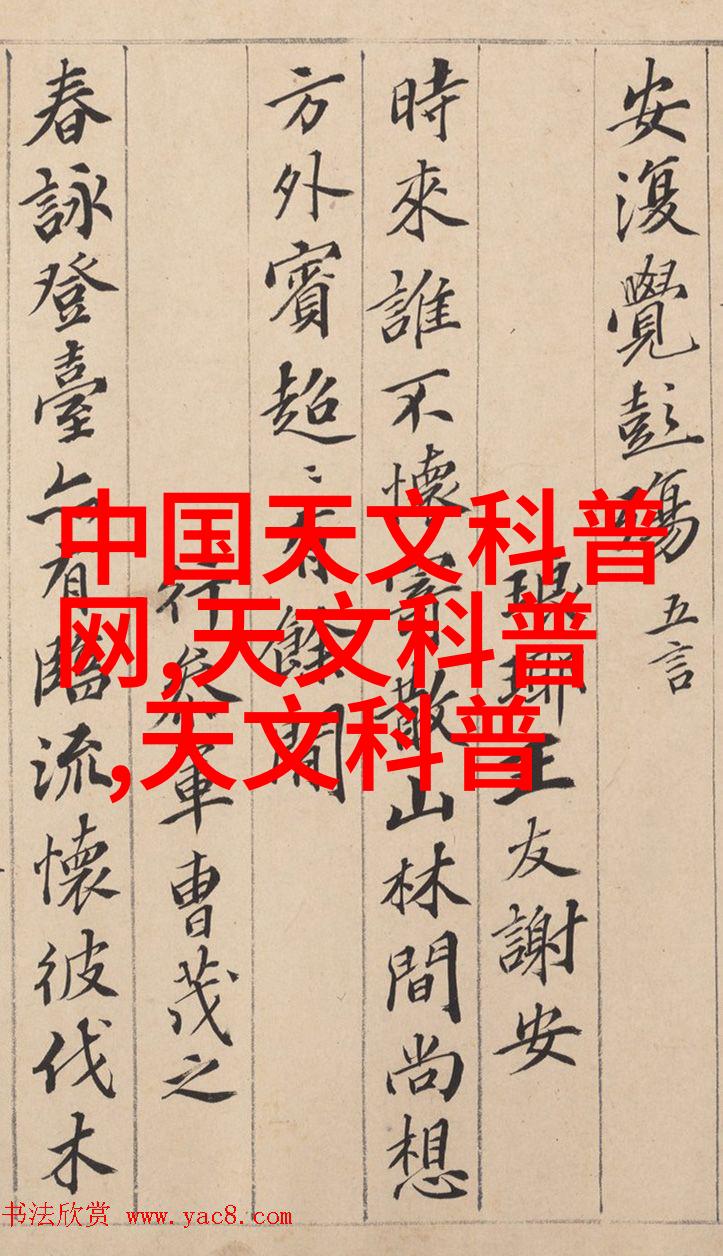 安復覺彭殤 五言
琅琊王友謝安
時來誰不懷寄散山林間尚想
方外賓超〻有餘閒
行參軍曹茂之
春詠登臺亦有臨流懷彼伐木
中国天文科普
网,天文科普
,天文科普
书法欣赏 www.yac8.com